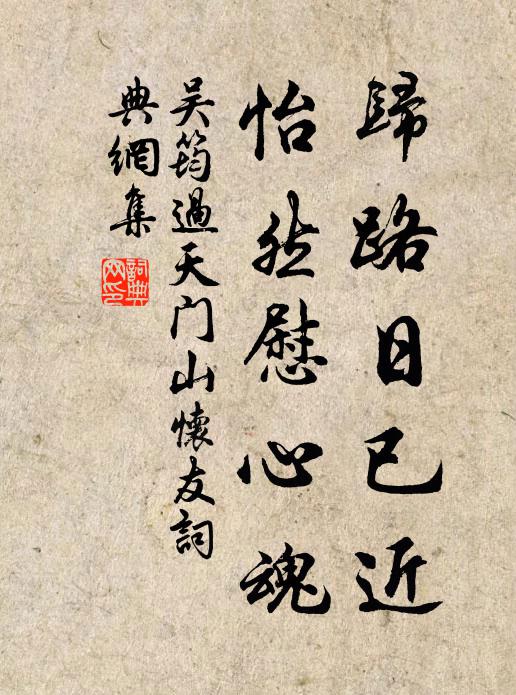 歸路日已近
怡然慰心魂
吴筠過天门山懷友詞
典網集
詞典網印